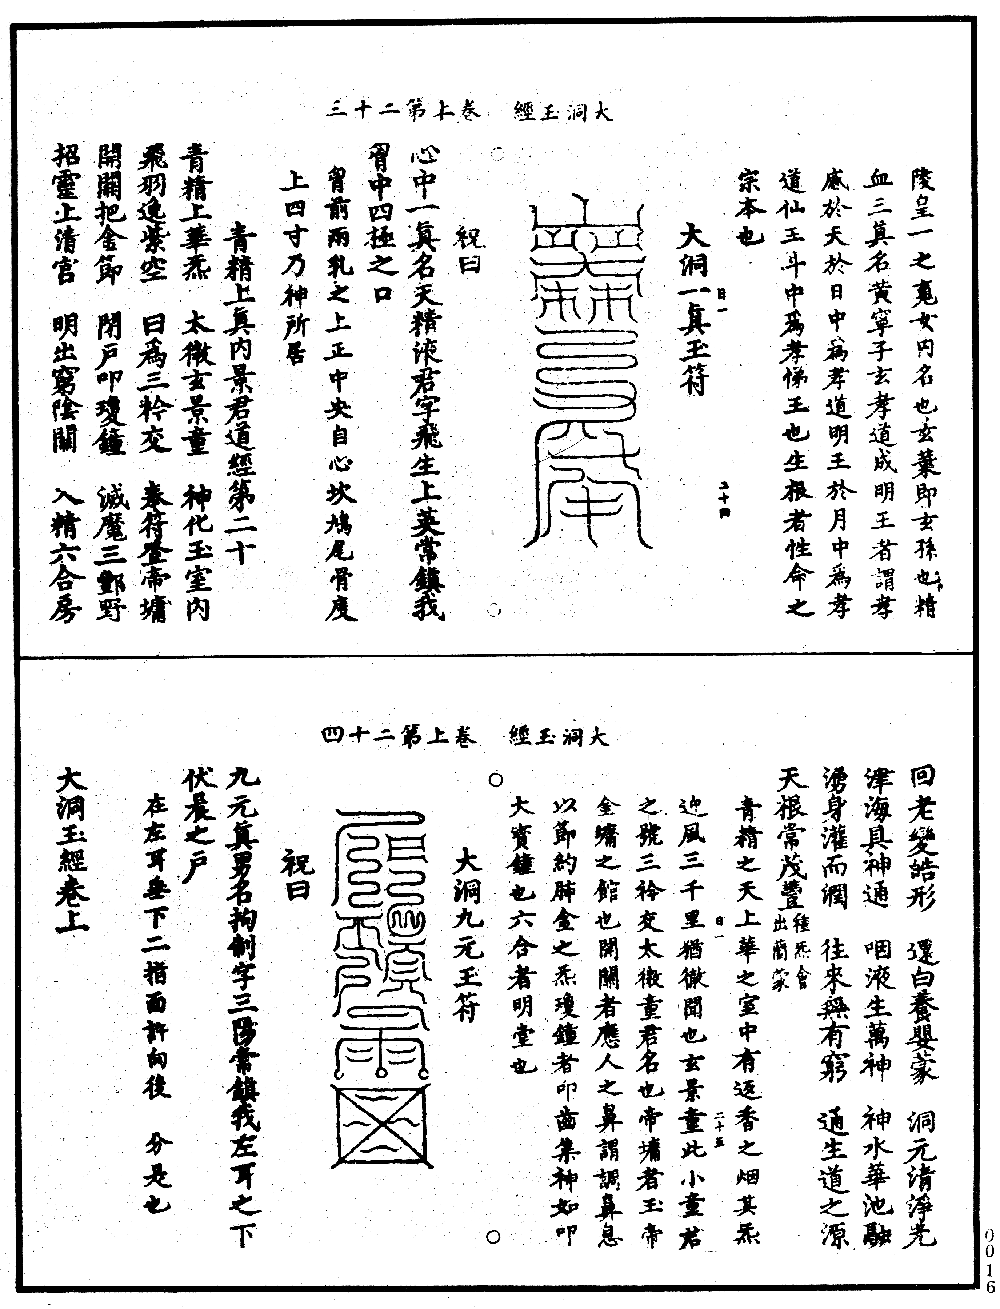 大洞玉經　卷上第二十三
陵皇一之嵬女內名也玄葉即玄孫也精
血三真名黃寧子玄孝道成明王者謂孝
感於天於日中為孝道明王於月中為孝
道仙王斗中為孝悌王也生根者性命之
宗本也
大洞一真玉符
祝曰
心中一真名天精液君字飛生上英常鎮我
胷中四極之口
胷前兩乳之上正中央自心坎鳩尾骨度
上四寸乃神所居
青精上真內景君道經第二十
青精上華炁　太微玄景童　神化玉室內
飛羽逸紫空　曰為三衿交　奏符登帝墉
開關把金節　閉戶叩瓊鐘　滅魔三酆野
招靈上清宮　明出窮陰關　入精六合房
大洞玉經　卷上第二十四
回老變皓形　還白養嬰蒙　洞元清淨光
津海具神通　咽液生萬神　神水華池融
湧身灌而潤　往來無有窮　通生道之源
天根常茂豐
青精之天上華之室中有返香之烟其炁
迎風三千里猶徹聞也玄景童此小童君
之號三衿交太微童君名也帝墉者玉帝
金墉之館也開關者應人之鼻謂調鼻息
以節約肺金之炁瓊鐘者叩齒集神如叩
大寶鐘也六合者明堂也
大洞九元玉符
祝曰
九元真男名拘制字三陽常鎮我左耳之下
伏晨之戶
在左耳垂下二指面許向後　分是也
大洞玉經卷上
0016